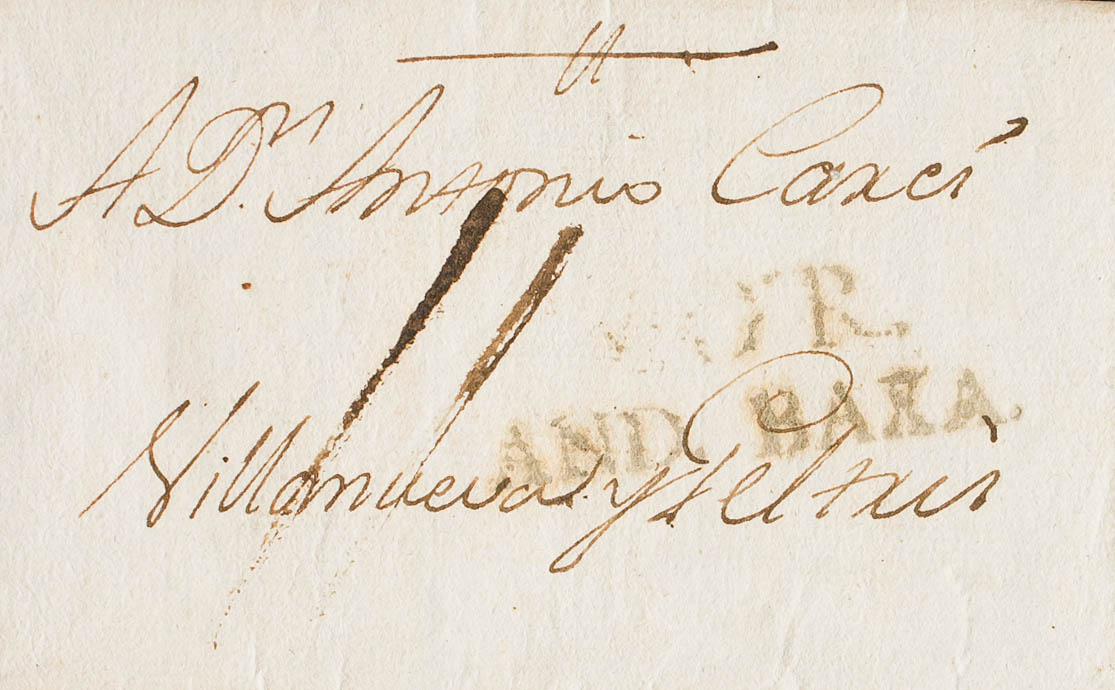 A Dn. Antonio Carci
AND. BAXA.
Villanueva y Geltrú